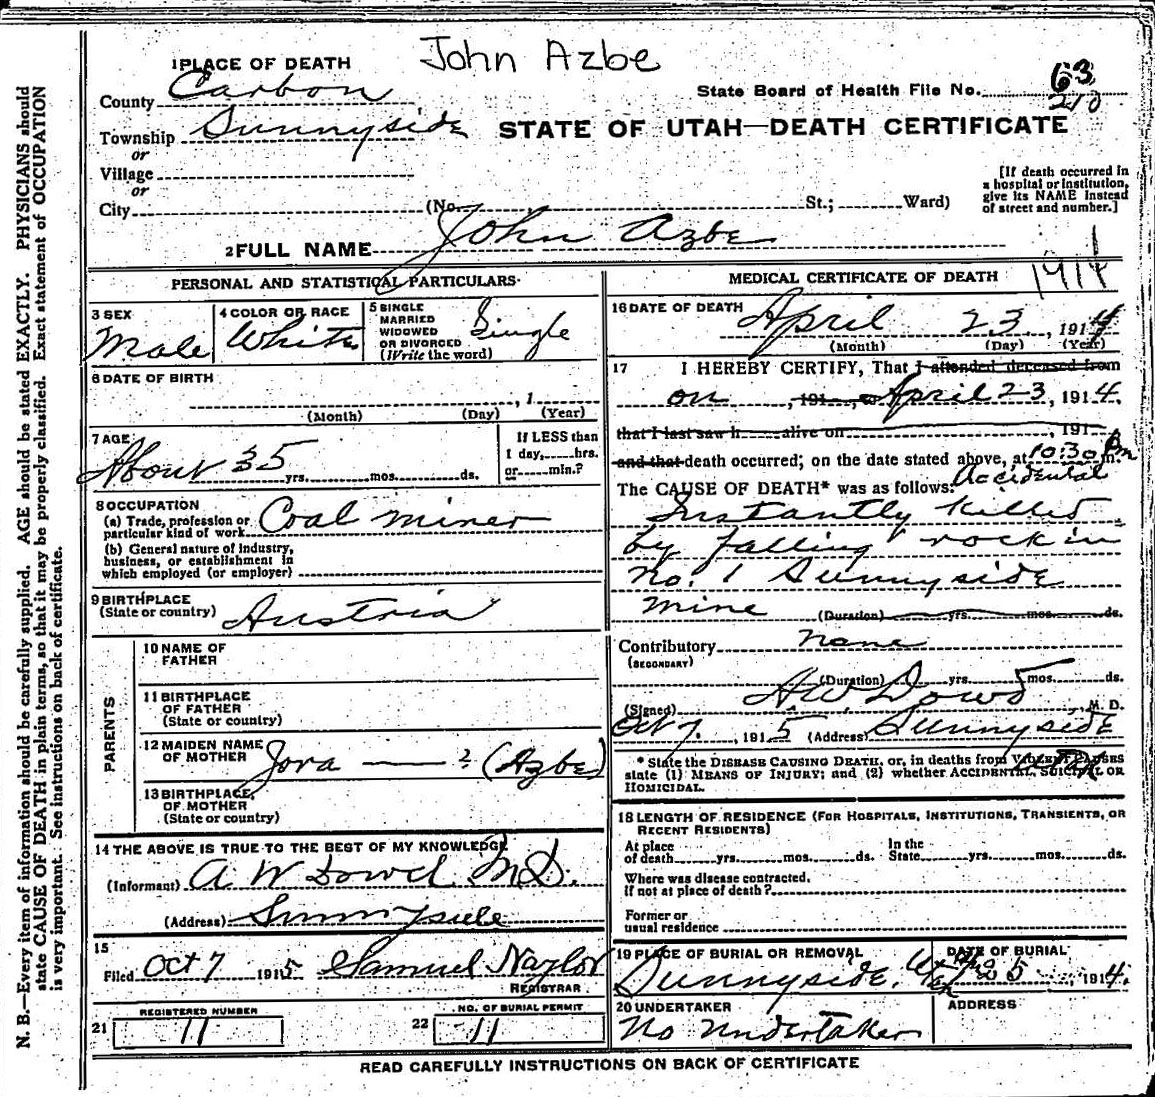 John Azbe
1 PLACE OF DEATH
County Carbon
State Board of Health File No. 63
210
Township Sunnyside
STATE OF UTAH—DEATH CERTIFICATE
or
Village
or
City (No. St.; Ward)
[If death occurred in
a hospital or institution,
give its NAME instead
of street and number.]
2 FULL NAME John Azbe
1914
PERSONAL AND STATISTICAL PARTICULARS
3 SEX
Male
4 COLOR OR RACE
White
5 SINGLE
MARRIED
WIDOWED
OR DIVORCED
(Write the word)
Single
6 DATE OF BIRTH
, 1
(Month) (Day) (Year)
7 AGE
About 35 yrs. mos. ds.
If LESS than
1 day, hrs.
or min.?
8 OCCUPATION
(a) Trade, profession or
particular kind of work Coal miner
(b) General nature of industry,
business, or establishment in
which employed (or employer)
9 BIRTHPLACE
(State or country) Austria
PARENTS
10 NAME OF
FATHER
11 BIRTHPLACE
OF FATHER
(State or country)
12 MAIDEN NAME
OF MOTHER Jora — ? (Azbe)
13 BIRTHPLACE
OF MOTHER
(State or country)
14 THE ABOVE IS TRUE TO THE BEST OF MY KNOWLEDGE
(Informant) A W Dowd M.D.
(Address) Sunnyside
15
Filed Oct 7 1915 Samuel Naylor
REGISTRAR
21 REGISTERED NUMBER
11
22 NO. OF BURIAL PERMIT
11
MEDICAL CERTIFICATE OF DEATH
16 DATE OF DEATH
April 23, 1914
(Month) (Day) (Year)
17 I HEREBY CERTIFY, That I attended deceased from
on , 191 , to April 23, 1914,
that I last saw h alive on , 191
and that death occurred; on the date stated above, at 10:30 Pm m.
The CAUSE OF DEATH* was as follows: Accidental
Instantly killed
by falling rock in
No. 1 Sunnyside
mine (Duration) yrs. mos. ds.
Contributory none
(SECONDARY)
(Duration) yrs. mos. ds.
(Signed) A.W. Dowd, M. D.
Oct 7, 1915 (Address) Sunnyside
Utah
* State the DISEASE CAUSING DEATH, or, in deaths from VIOLENT CAUSES
state (1) MEANS OF INJURY; and (2) whether ACCIDENTAL, SUICIDAL OR
HOMICIDAL.
18 LENGTH OF RESIDENCE (FOR HOSPITALS, INSTITUTIONS, TRANSIENTS, OR
RECENT RESIDENTS)
At place
of death yrs. mos. ds.
In the
State yrs. mos. ds.
Where was disease contracted.
if not at place of death?
Former or
usual residence
19 PLACE OF BURIAL OR REMOVAL
Sunnyside, Utah
DATE OF BURIAL
25, 1914.
20 UNDERTAKER
No undertaker
ADDRESS
READ CAREFULLY INSTRUCTIONS ON BACK OF CERTIFICATE
N. B.—Every item of information should be carefully supplied. AGE should be stated EXACTLY. PHYSICIANS should
state CAUSE OF DEATH in plain terms, so that it may be properly classified. Exact statement of OCCUPATION
is very important. See instructions on back of certificate.